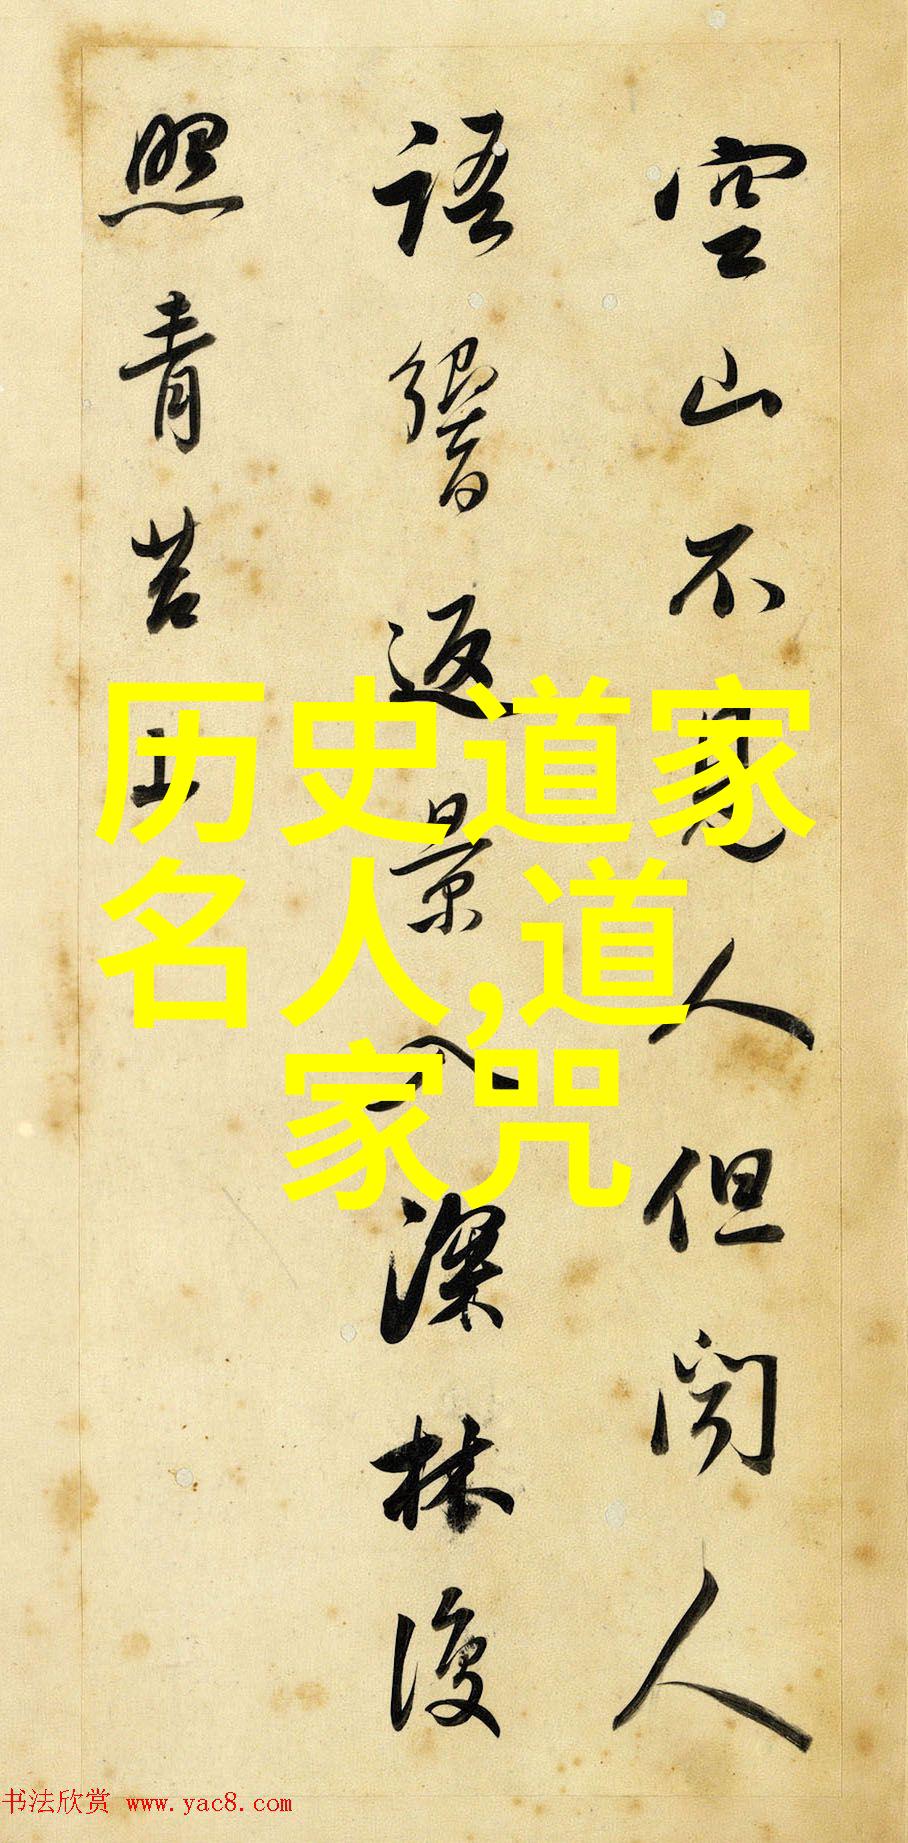 空山不見人但聞人
語響返景入深林復
照青苔上
历史道家
名人,道
家咒
书法欣赏 www.yac8.com